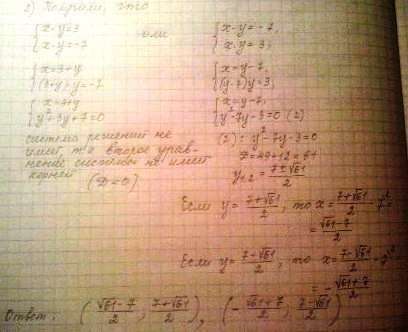 2) Получаем, что
{ x-y=3
{ x·y=-7
или
{ x-y=-7,
{ x·y=3;
{ x=3+y
{ (3+y)y=-7
{ x=y-7,
{ (y-7)y=3;
{ y²+3y+7=0
{ x=y-7,
{ y²-7y-3=0 (2)
система решений не
имеет, т.к второе урав-
нение системы не имеет
корней
(D<0)
(2): y²-7y-3=0
D=49+12=61
y₁,₂=(7±√61)/2
Если y=(7+√61)/2, то x=(7+√61)/2
=(√61-7)/2
Если y=(7-√61)/2, то x=(7-√61)/2
=-(√61+7)/2
Ответ: ((√61-7)/2; (7+√61)/2), (-(√61+7)/2; (7-√61)/2)